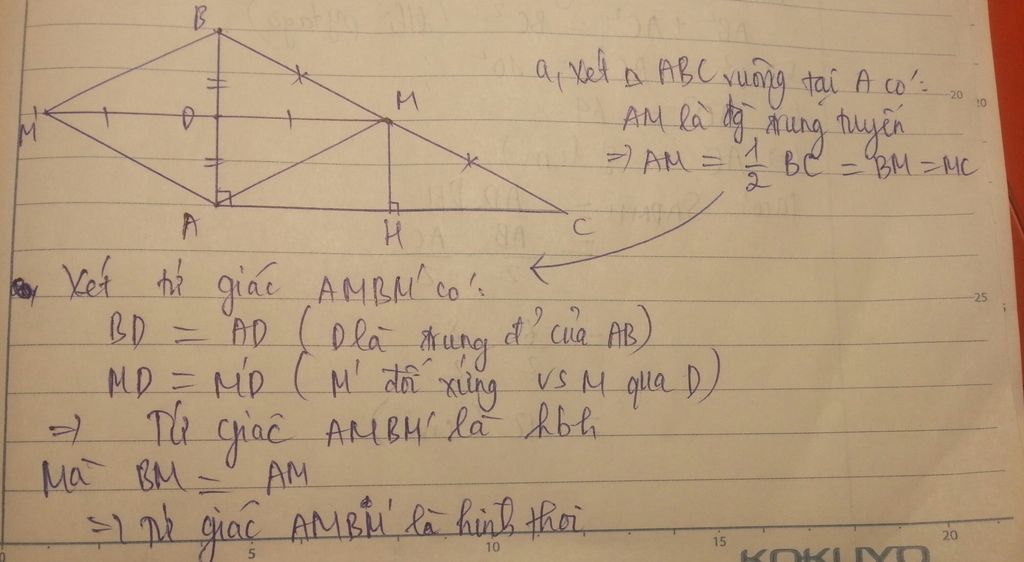 B
M'
D
M
A
H
C
a, Xét Δ ABC vuông tại A có:
AM là đg trung tuyến
=> AM = 1/2 BC = BM = MC
Xét tứ giác AMBM' có:
BD = AD ( D là trung đ' của AB)
MD = M'D ( M' đối xứng vs M qua D)
=> Tứ giác AMBM' là hbh
Mà BM = AM
=> Tứ giác AMBM' là hình thoi
20
25
0 5 10 15 20
KOKUYO